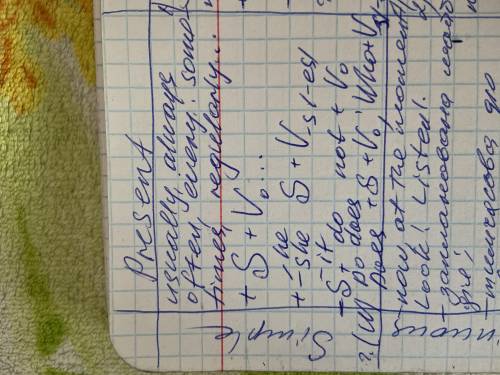 Present
Simple
usually, always
often, every; some
times, regularly...
+ S + V₀...
+ - he
- she S + V-s/-es
- it
- S + do not + V₀
does
? (Wh) Do
Does + S + V₀? Who + V-s/
- now, at the moment,
Look! Listen!
- запланована
дія;
- тимчасова дія